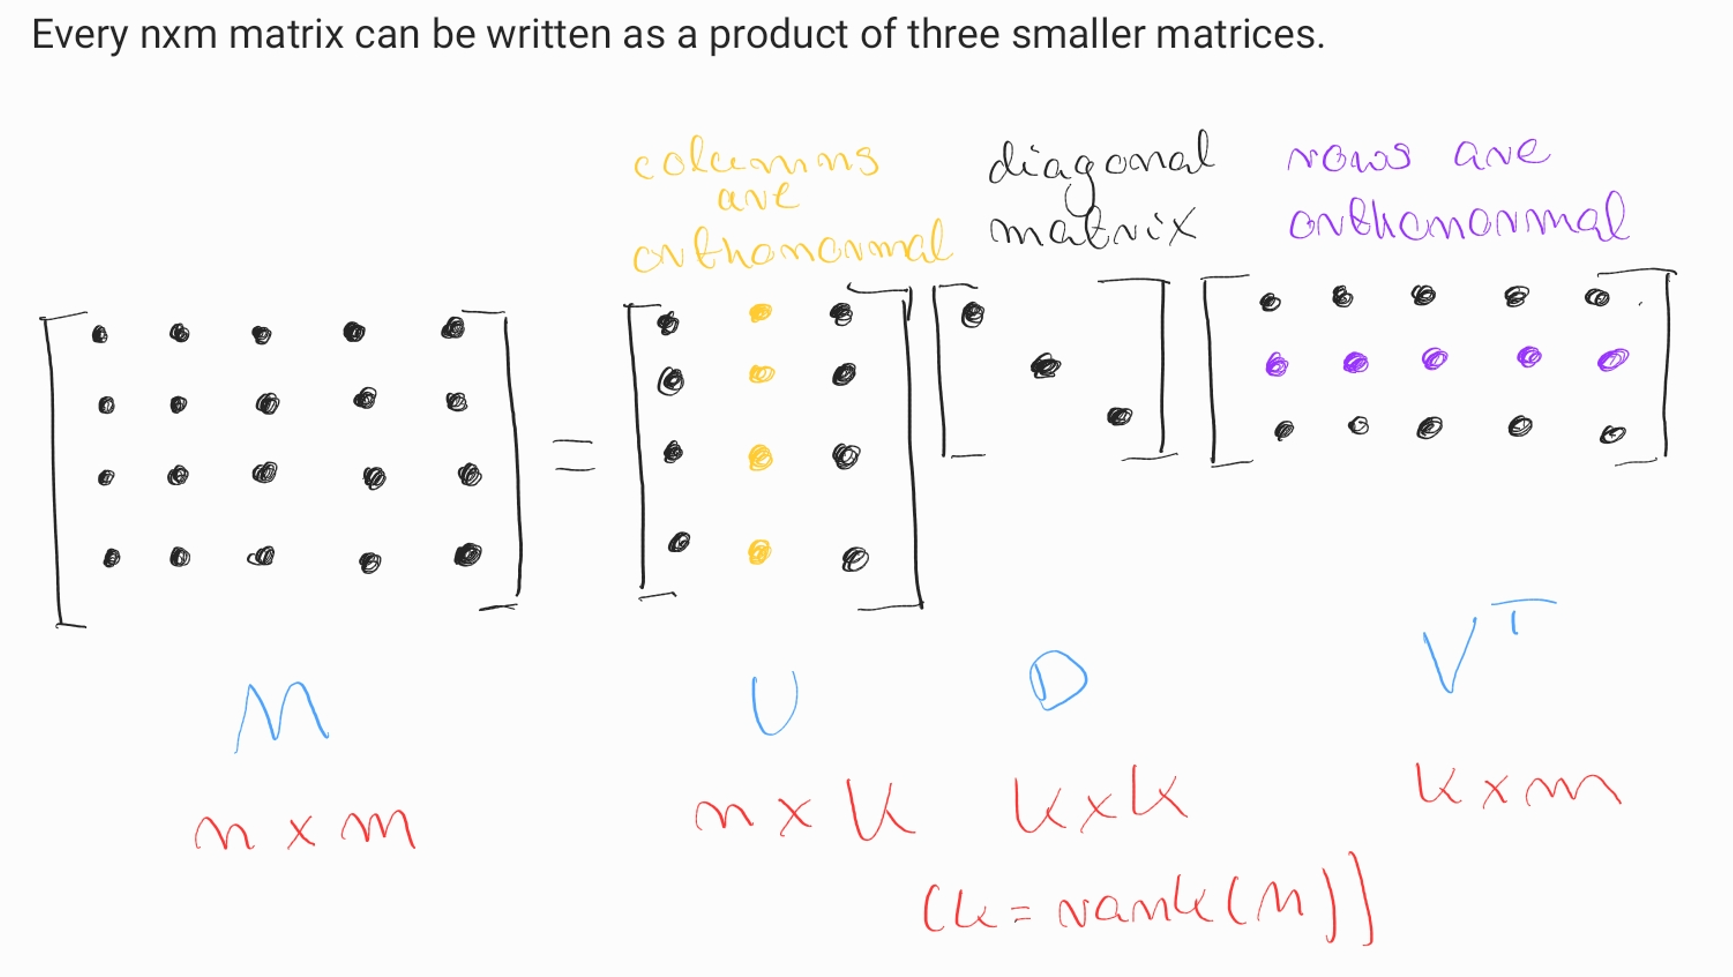 Every nxm matrix can be written as a product of three smaller matrices.
columns
are
orthonormal
diagonal
matrix
rows are
orthonormal
=
M
U
D
V^T
n x m
n x k
k x k
k x m
(k = rank(M))